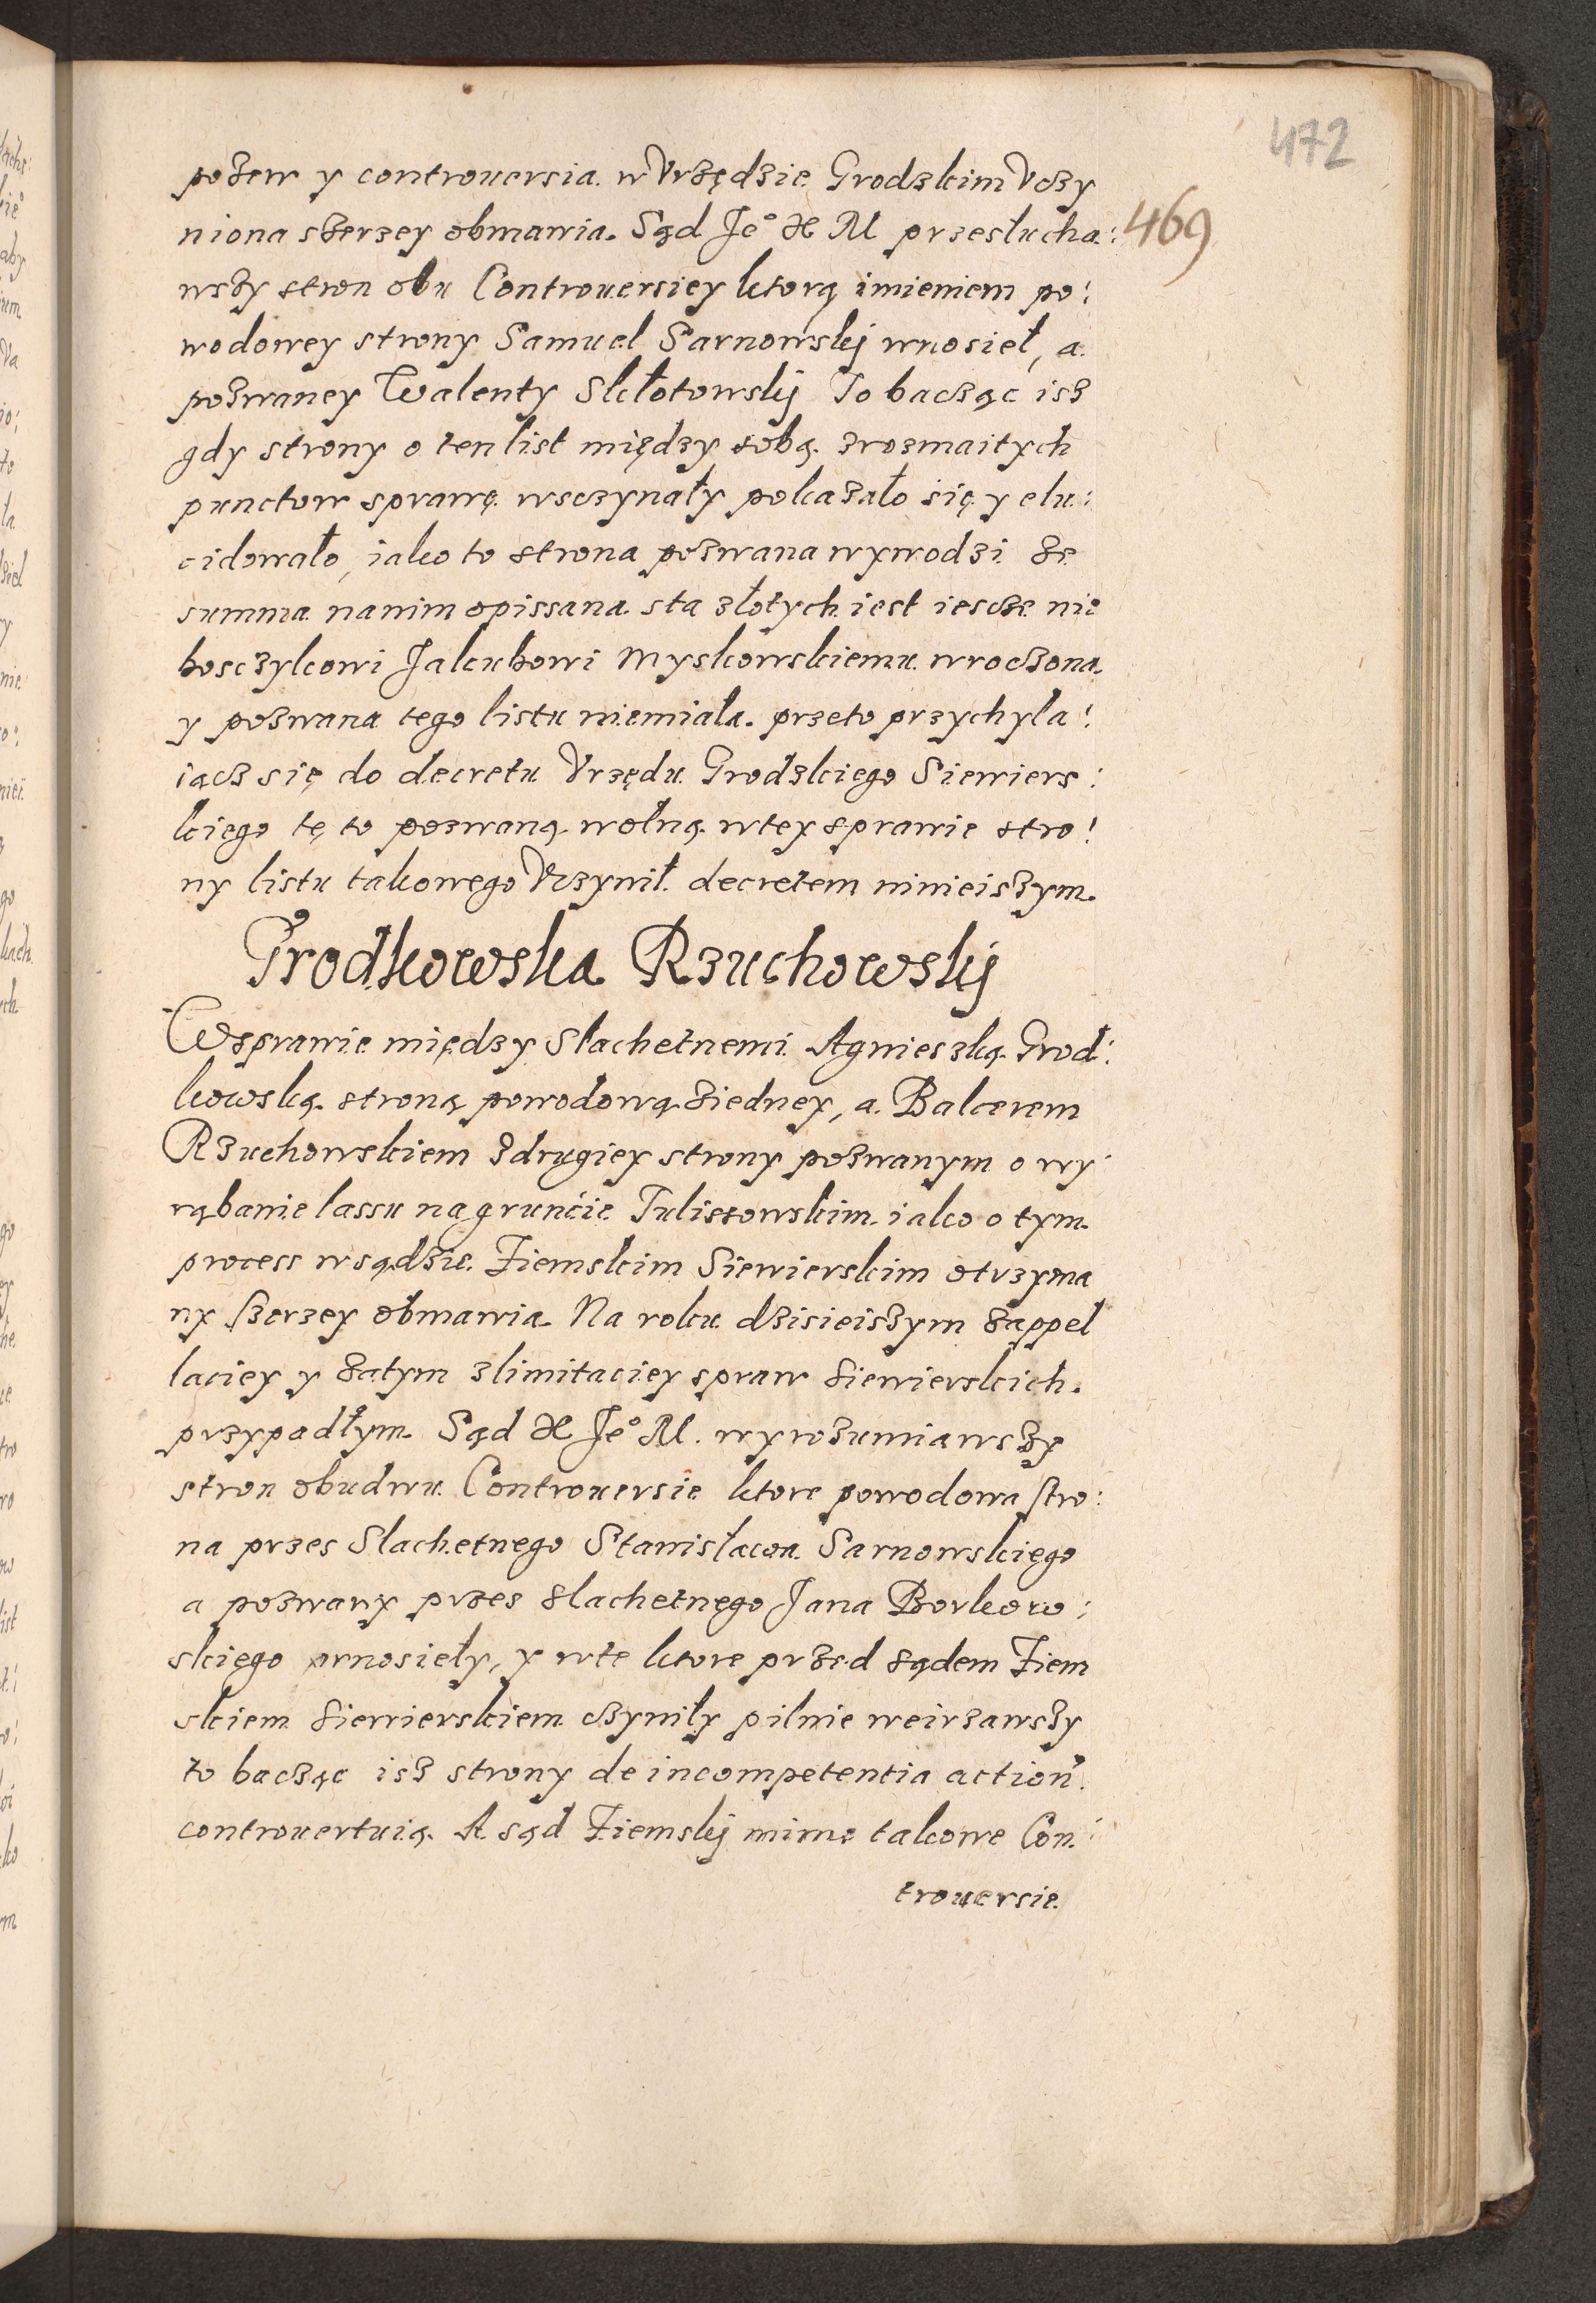 472
pozew y controuersia w Vrzędzie Grodzkim Vczy
niona szerzey obmawia. Sąd Je° X M przesłucha:
469
wszy stron obu Controuersiey ktorą imieniem po:
wodowey strony Samuel Sarnowskj wnosieł, a
pozwaney Walenty Skłotowskj To bacząc isz
gdy strony o ten list między sobą zrozmaitych
punctow sprawę wsczynały pokazało się y elu:
cidowało, iako to strona pozwana wywodzi że
summa nanim opissana sta złotych iest iescze nie
bosczykowi Jakubowi Myskowskiemu wroczona
y pozwana tego listu niemiała. przeto przychyla:
iącz się do decretu Vrzędu Grodzkiego Siewiers:
kiego tę to pozwaną wolną wtey sprawie stro:
ny listu takowego Vczynił decretem ninieiszym.
Grodkowska Rzuchowskj
Wsprawie między Slachetnemi Agnieszką Grod:
kowską stroną powodową ziedney, a Balcerem
Rzuchowskiem zdrugiey strony pozwanym o wy
rąbanie lassu na grunćie Tulissowskim iako o tym
process wsądzie Ziemskim Siewierskim otrzyma
ny szerzey obmawia. Na roku dzisieiszym zappel
laciey y zatym zlimitaciey spraw siewierskich.
przypadłym Sąd X Je° M. wyrozumiawszy
stron obudwu Controuersie ktore powodowa stro:
na przes Slachetnego Stanisława Sarnowskiego
a pozwany przes slachetnego Jana Borkow:
skiego wnosieły, y wte ktore przed sądem Ziem
skiem siewierskiem czyniły pilnie weirzawszy
to bacząc isz strony de incompetentia action̄.
controuertuią. A sąd Ziemskj mimo takowe Con:
trouersie